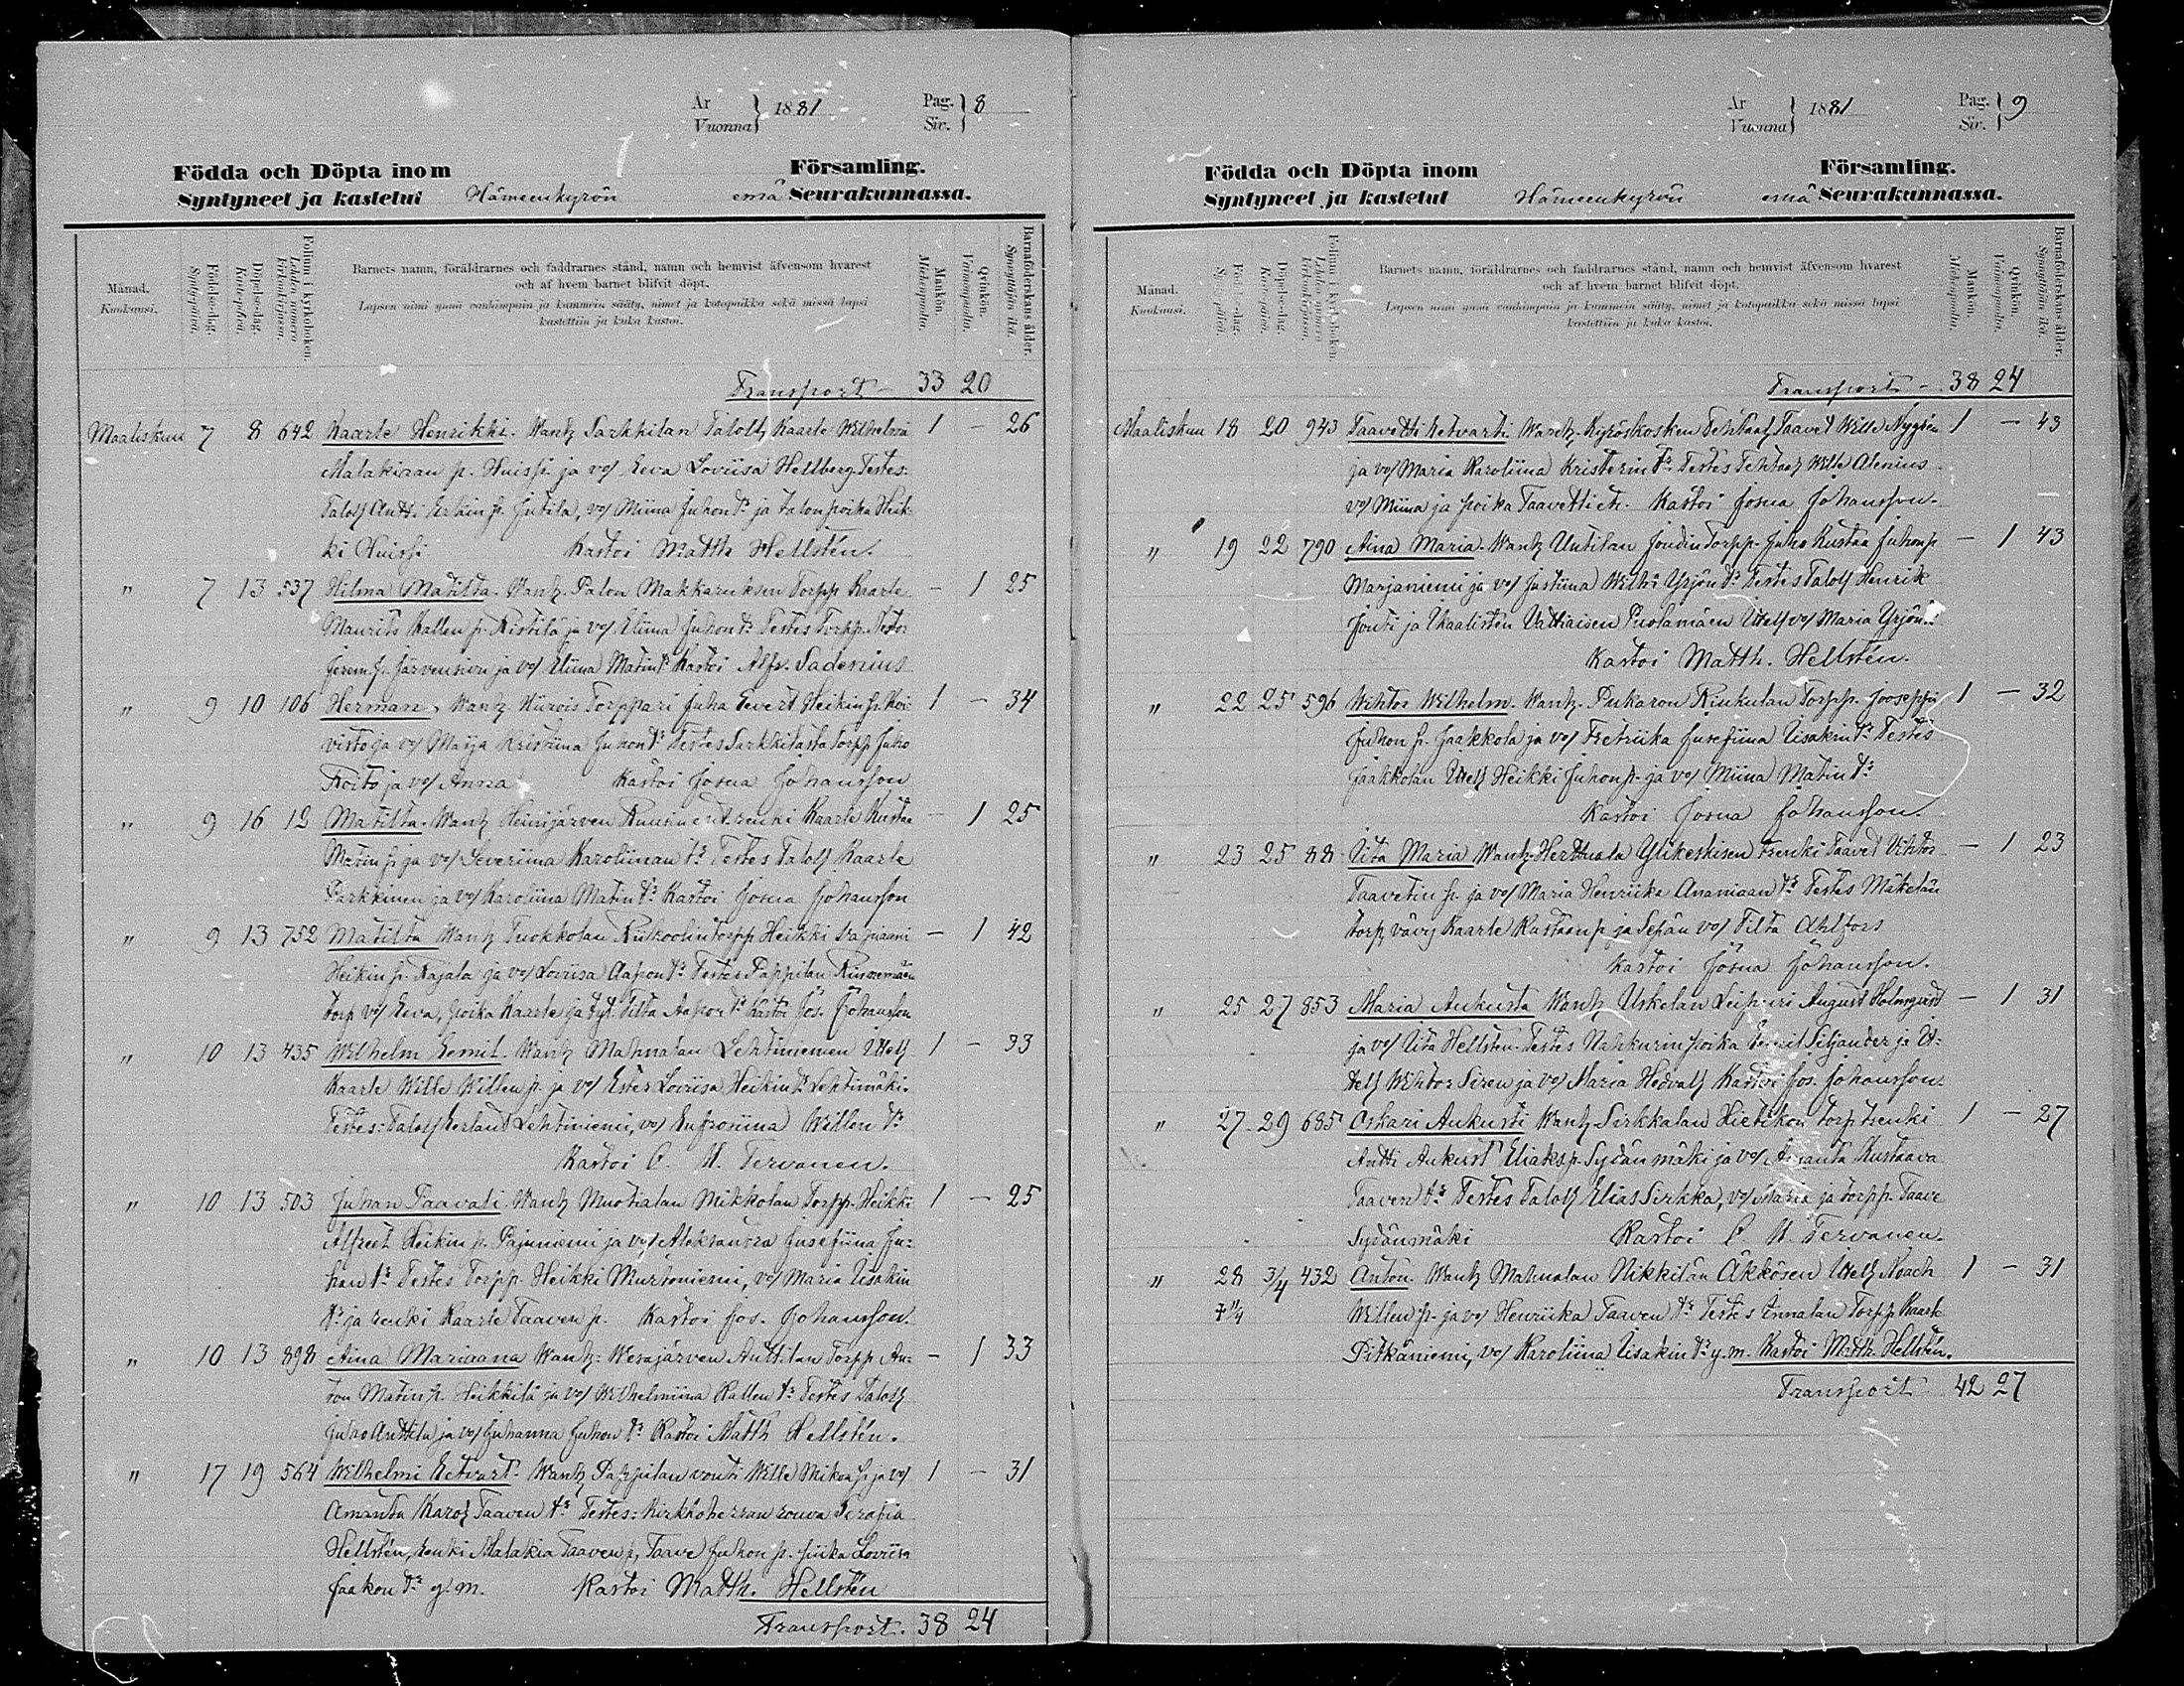 År
Vuonna } 1881
Pag.
Siv. } 8
Födda och Döpta inom Församling.
Syntyneet ja kastetut Hämeenkyrön emä Seurakunnassa.
Månad.
Kuukausi.
Födelsedag.
Syntypäivä.
Döpelsedag.
Kastepäivä.
Folium i kyrkoboken.
Lehden numero kirkonkirjassa.
Barnets namn, föräldrarnes och faddrarnes stånd, namn och hemvist äfvensom hvarest
och af hvem barnet blifvit döpt.
Lapsen nimi ynnä vanhempain ja kummein sääty, nimet ja kotopaikka sekä missä lapsi
kastettiin ja kuka kastoi.
Mankön.
Miehenpuolia.
Qvinkön.
Vaimonpuolia.
Barnaföderskans ålder.
Synnyttäjän ikä.
Transport – 33 20
Maaliskuu 7 8 642 Kaarle Henrikki. Wanh Sarkkilan Talolh Kaarle Wilhelmi 1 – 26
Malakiaan p. Huissi ja vo/ Eeva Loviisa Hellberg. Testes:
Talolh Antti Erkin p. Jutila, vo/ Miina Juhon tr ja talon poika Heik-
ki Huissi Kastoi Matth Hellstén.
" 7 13 537 Hilma Matilta. Wanh. Palon Makkaruksen Torpp Kaarle – 1 25
Maurits Kallen p. Ristilä ja vo/ Eliina Juhon tr Testes Torpp. Nestor
Jerem p. Järvensivu ja vo/ Eliina Matin tr Kastoi Alfr. Sadenius
" 9 10 106 Herman. Wanh Torppari Juha Eevert Heikin p. Koi- 1 – 34
visto ja vo/ Maija Kristiina Juhon tr Testes Sarkkilasta Torpp Juho
Koito ja vo/ Anna Kastoi Josua Johansson
" 9 16 12 Matilta. Wanh Heinijärven Ruusin ent. renki Kaarle Kustaa – 1 25
Matin p. ja vo/ Severiina Karoliinan tr Testes Talolh Kaarle
Parkkinen ja vo/ Karoliina Matin tr Kastoi Josua Johansson
" 9 13 752 Matilta Wanh Tuokkolan Torpp Heikki Vapiaani – 1 42
Heikin p. Rajala ja vo/ Loviisa Aapon tr Testes Pappilan
torp vo/ Eeva, poika Kaarle ja tyt. Tilta Aapon tr Kastoi Jos. Johansson
" 10 13 435 Wilhelm Eemil. Wanh Mahnalan Lehtiniemen Itell 1 – 33
Kaarle Wille Willen p. ja vo/ Ester Loviisa Heikin tr Lehtimäki.
Testes: Talolh Eerland Lehtiniemi, vo/ Eufrosiina Willen tr
Kastoi C. U. Tervonen.
" 10 13 503 Juhan Taavati. Wanh Muotialan Mikkolan Torpp. Heikki 1 – 25
Alfreet Heikin p. Pajuniemi ja vo/ Aleksandra Jusefiina Ju-
han tr Testes Torpp. Heikki Murtoniemi, vo/ Maria Iisakin
tr ja renki Kaarle Taaven p. Kastoi Jos. Johansson.
" 10 13 898 Aina Mariaana Wanh: Wesajärven Anttilan Torpp An- – 1 33
ton Matin p. Heikkilä ja vo/ Wilhelmiina Kallen tr Testes Talolh
Juho Anttila ja vo/ Juhanna Juhon tr Kastoi Matth Hellstén.
" 17 19 564 Wilhelmi Eetvart. Wanh Pappilan vouti Wille Mikon p. ja vo/ 1 – 31
Amanta Karol Taaven tr Testes: Kirkkoherran rouva Serafia
Hellstén, renki Malakia Taaven p, Taave Juhon p. piika Loviisa
Jaakon tr y. m. Kastoi Matth. Hellstén
Transport. 38 24
År
Vuonna } 1881
Pag.
Siv. } 9
Födda och Döpta inom Församling.
Syntyneet ja kastetut Hämeenkyrön emä Seurakunnassa.
Månad.
Kuukausi.
Födelsedag.
Syntypäivä.
Döpelsedag.
Kastepäivä.
Folium i kyrkoboken.
Lehden numero kirkonkirjassa.
Barnets namn, föräldrarnes och faddrarnes stånd, namn och hemvist äfvensom hvarest
och af hvem barnet blifvit döpt.
Lapsen nimi ynnä vanhempain ja kummein sääty, nimet ja kotopaikka sekä missä lapsi
kastettiin ja kuka kastoi.
Mankön.
Miehenpuolia.
Qvinkön.
Vaimonpuolia.
Barnaföderskans ålder.
Synnyttäjän ikä.
Transport – 38 24
Maaliskuu 18 20 943 Taavetti Eetvarti Wanh. Kyröskosken Tehtaal Taavet Wille Nygrén 1 – 43
ja vo/ Maria Karoliina Kristerin tr Testes Tehtaal Wille Alenius
vo/ Miina ja poika Taavetti etc. Kastoi Josua Johansson.
" 19 22 790 Aina Maria. Wanh Untilan Joudin Torpp. Juho Kustaa Juhon p – 1 43
Marjaniemi ja vo/ Justiina Wilh: Yrjön tr Testes Talolh Henrik
Jouti ja Ikaalisten Vattiaisen Puolamäen Itell vo/ Maria Yrjön
Kastoi Matth. Hellstén.
" 22 25 596 Wihtor Wilhelm. Wanh. Pukaron Rinkulan Torpp. Jooseppi 1 – 32
Juhon p. Jaakkola ja vo/ Fretriika Jusefiina Iisakin tr Testes
Jaakkolan Itell Heikki Juhon p. ja vo/ Miina Matin tr
Kastoi Josua Johansson.
" 23 25 88 Iita Maria Wanh. Herttuala Ylikeskisen renki Taavet Vihtor – 1 23
Taavetin p. ja vo/ Maria Henriika Ananiaan tr Testes Mäkelän
torp vävy Kaarle Kustaan p ja Sepän vo/ Tilta Ahlfors
Kastoi Josua Johansson.
" 25 27 853 Maria Aukusta Wanh Uskelan August Holmqvist – 1 31
ja vo/ Iita Hellstén. Testes Nahkurin poika Eemil Siljander ja It-
tell Wihtor Siren ja vo/ Maria Hedvall Kastoi Jos. Johansson.
" 27 29 685 Oskari Aukusti Wanh. Sirkkalan Hietikon torp renki 1 – 27
Antti Aukust Eliaks p. Sydänmäki ja vo/ Amanta Kustaava
Taaven tr Testes Talolh Elias Sirkka, vo/ Maria ja torpp. Taave
Sydänmäki Kastoi C U. Tervonen.
" 28 3/4 432 Anton. Wanh Mahnalan Nikkilän Äkkösen Itell Noach 1 – 31
† 11/4 Willen p. ja vo/ Henriika Taaven tr Testes Innalan Torpp Kaarle
Pitkäniemi, vo/ Karoliina Iisakin tr y. m. Kastoi Matth. Hellstén.
Transport 42 27